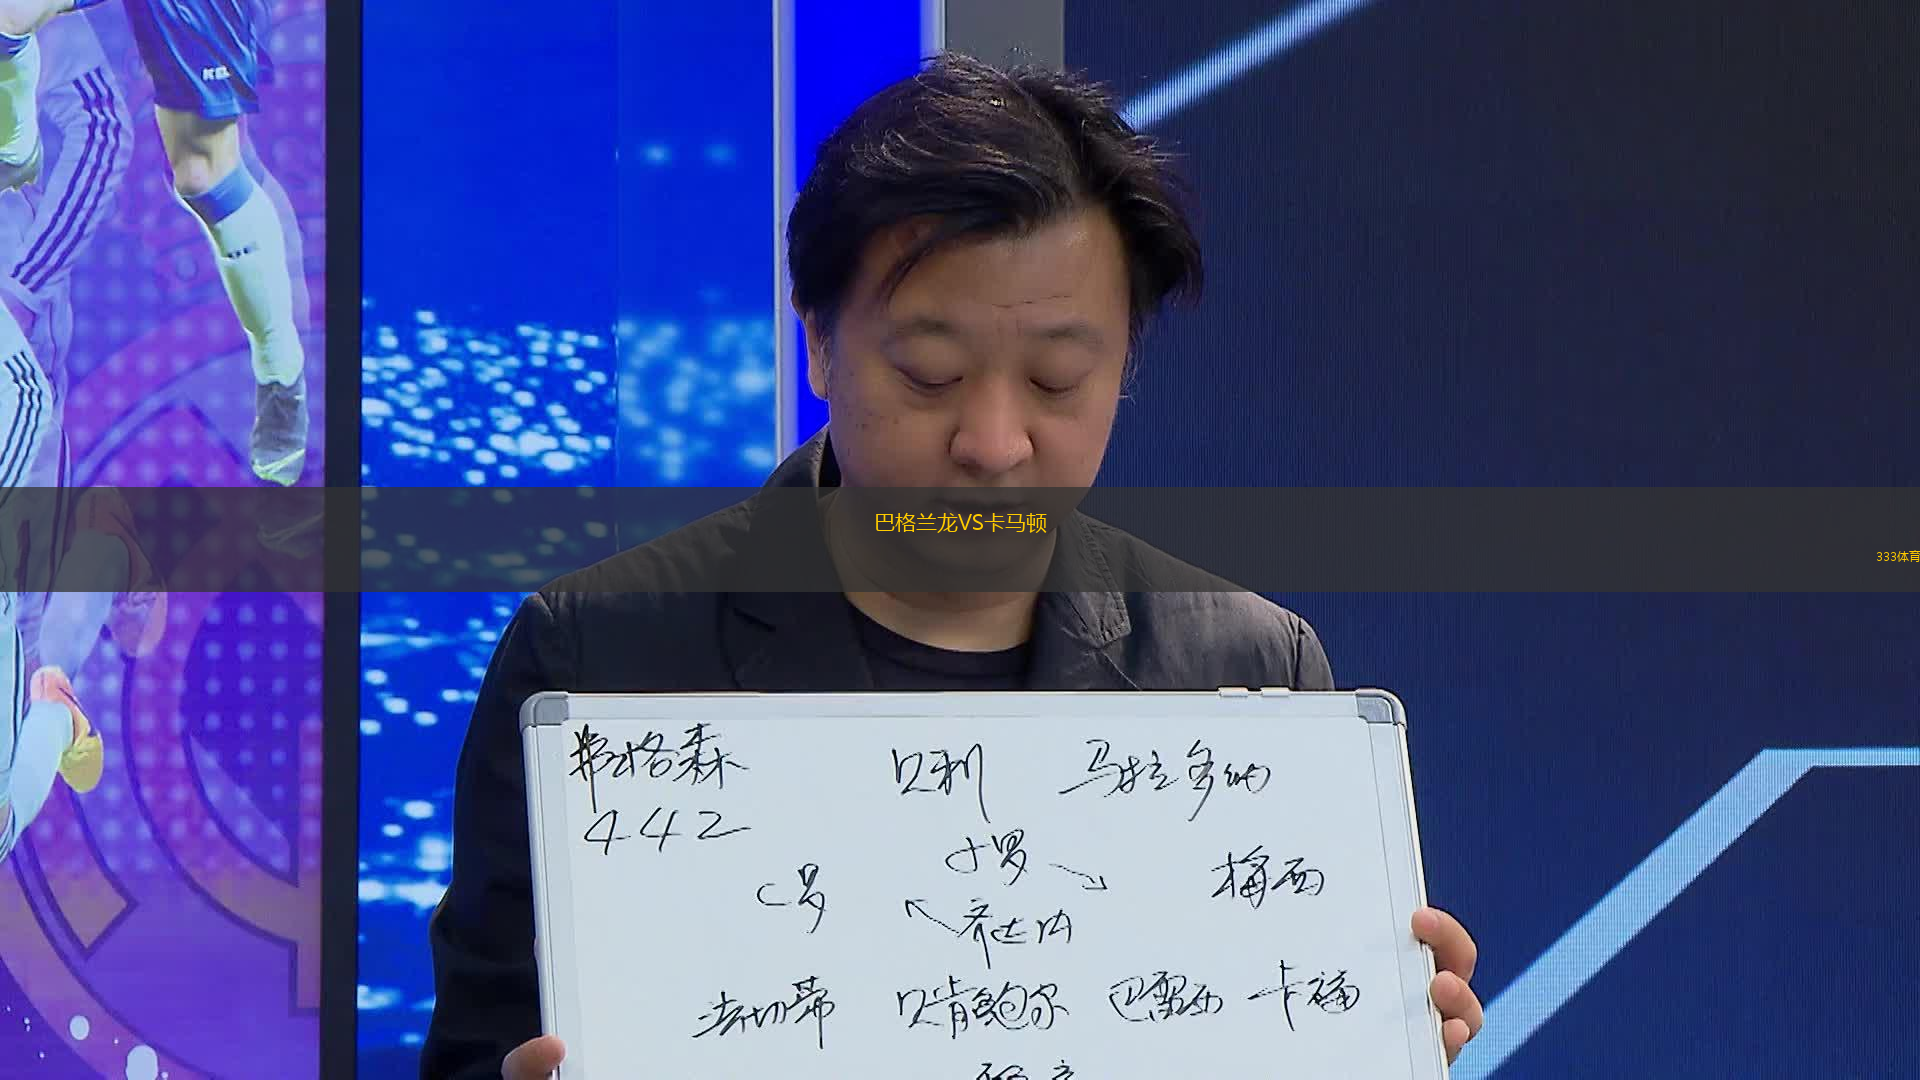 KEL
巴格兰龙VS卡马顿
333体育
弗格森 贝利 马拉多纳
442
小罗
C罗 梅西
齐达内
法切蒂 贝肯鲍尔 巴雷西 卡福